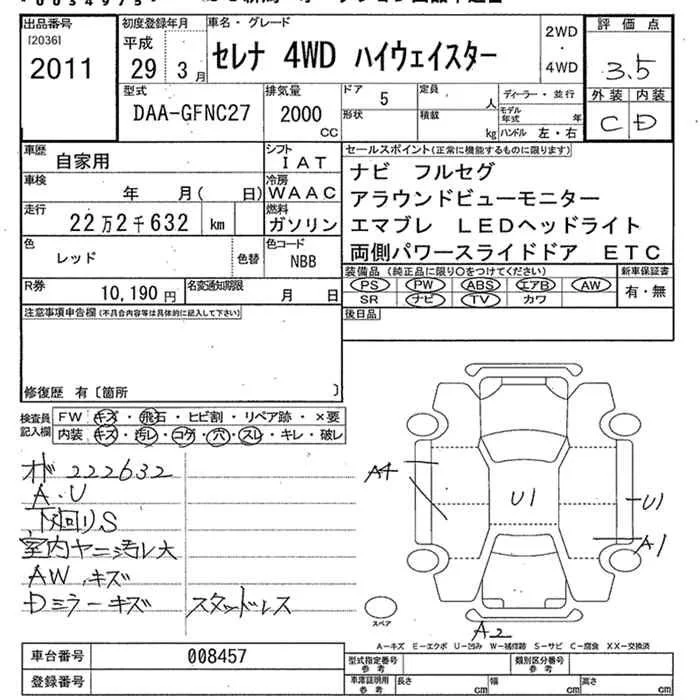 出品番号 初度登録年月 車名・グレード 評価点
[2036]
2011 平成 29 3月 セレナ 4WD ハイウェイスター 2WD・4WD 3.5
型式 排気量 ドア 定員 ディーラー・並行 外装 内装
DAA-GFNC27 2000 CC 5 人 モデル年式 年 C D
形状 積載 kg ハンドル 左・右
車歴 自家用 シフト IAT セールスポイント(正常に機能するものに限ります)
車検 年 月( 日) 冷房 WAAC ナビ フルセグ
走行 22万2千632 km 燃料 ガソリン アラウンドビューモニター
エマブレ LEDヘッドライト
色 レッド 色替 色コード NBB 両側パワースライドドア ETC
R券 10,190円 名変通知期限 月 日 装備品(純正品に限り○をつけてください) 新車保証書
PS PW ABS エアB AW 有・無
SR ナビ TV カワ
注意事項申告欄(不具合内容等は具体的に記入して下さい) 後日品
修復歴 有〔箇所 〕
検査員記入欄 FW キズ・飛石・ヒビ割・リペア跡・×要
内装 キズ・汚レ・コゲ・穴・スレ・キレ・破レ
オド 222632
A・U
下廻りS
室内ヤニ汚レ大
AW キズ
Dミラーキズ スタッドレス
A4 U1 U1
A1
A2
スペア
A-キズ E-エクボ U-凹み W-補修跡 S-サビ C-腐食 XX-交換済
車台番号 008457 型式指定番号 参考 類別区分番号 参考
登録番号 車庫証明用 参考 長さ cm 幅 cm 高さ cm